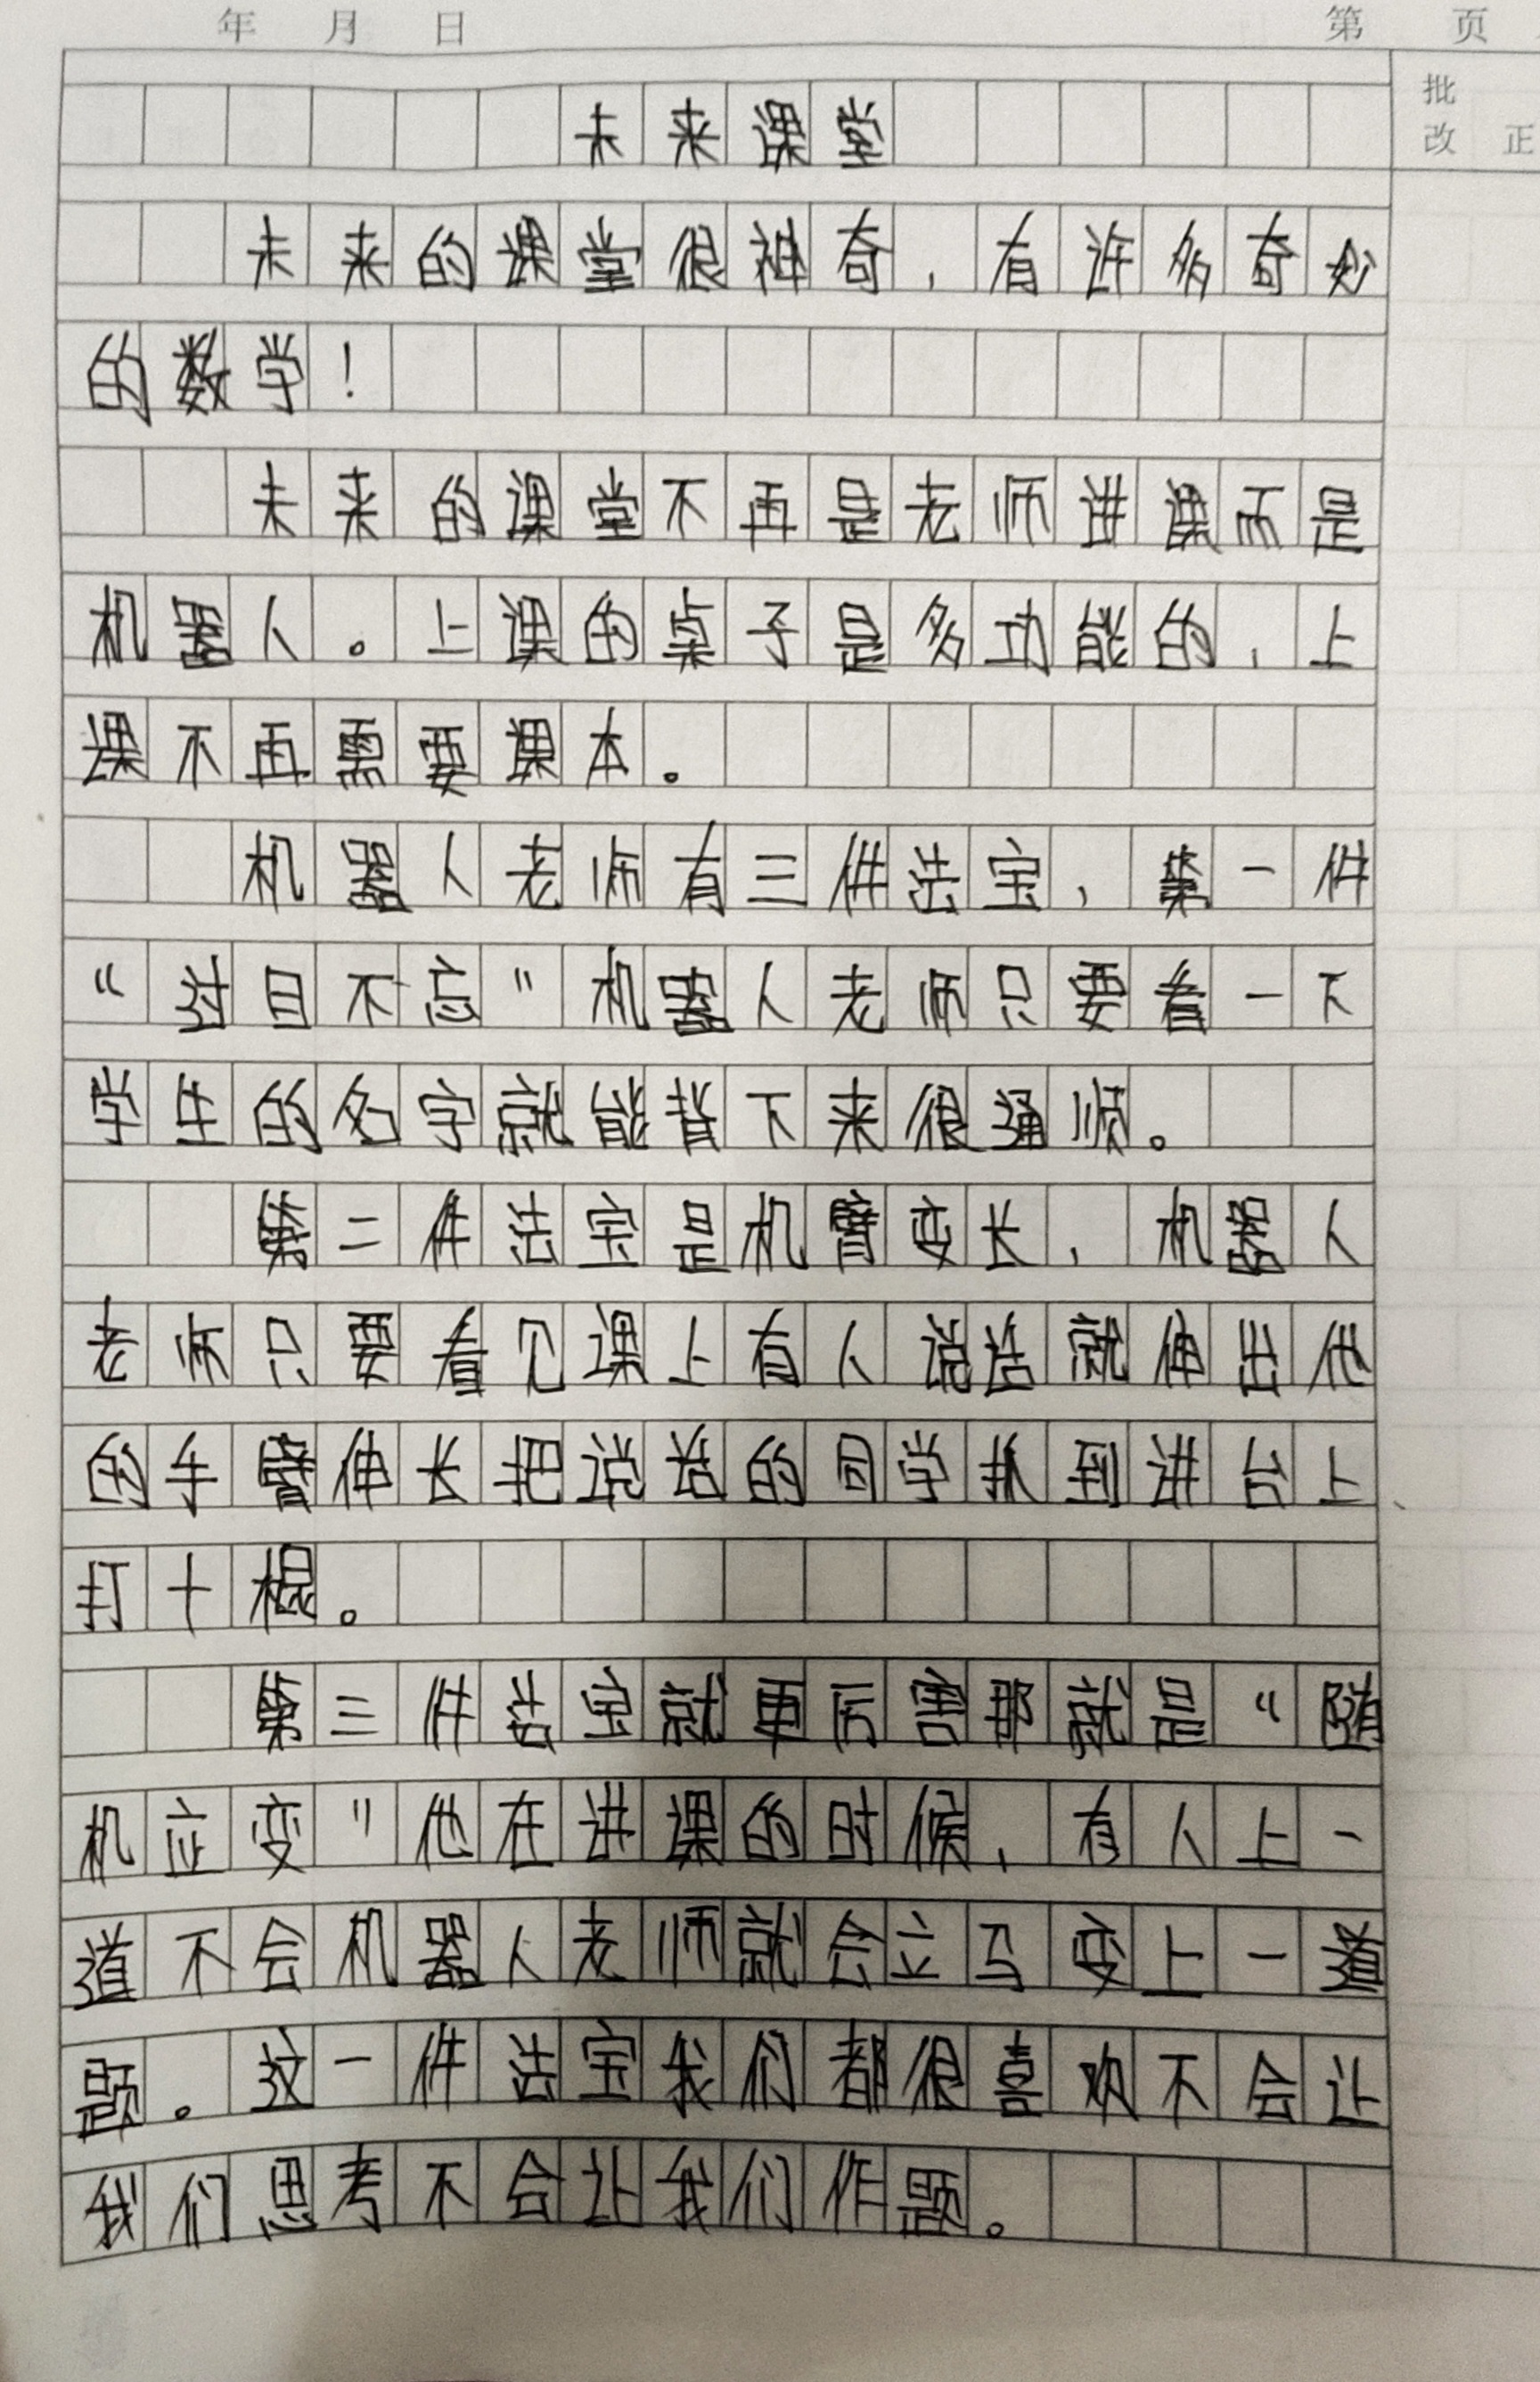 年 月 日 第 页
批
改 正
未来课堂
未来的课堂很神奇，有许多奇妙
的数学！
未来的课堂不再是老师讲课而是
机器人。上课的桌子是多功能的，上
课不再需要课本。
机器人老师有三件法宝，第一件
“过目不忘”机器人老师只要看一下
学生的名字就能背下来很通顺。
第二件法宝是机臂变长，机器人
老师只要看见课上有人说话就伸出他
的手臂伸长把说话的同学抓到讲台上、
打十棍。
第三件法宝就更厉害那就是“随
机应变”他在讲课的时候，有人上一
道不会机器人老师就会立马变上一道
题。这一件法宝我们都很喜欢不会让
我们思考不会让我们作题。